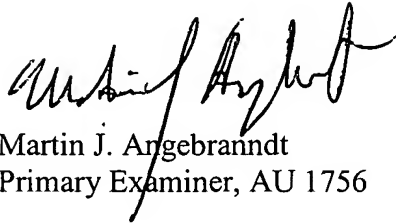 Martin J. Angebranndt
Primary Examiner, AU 1756